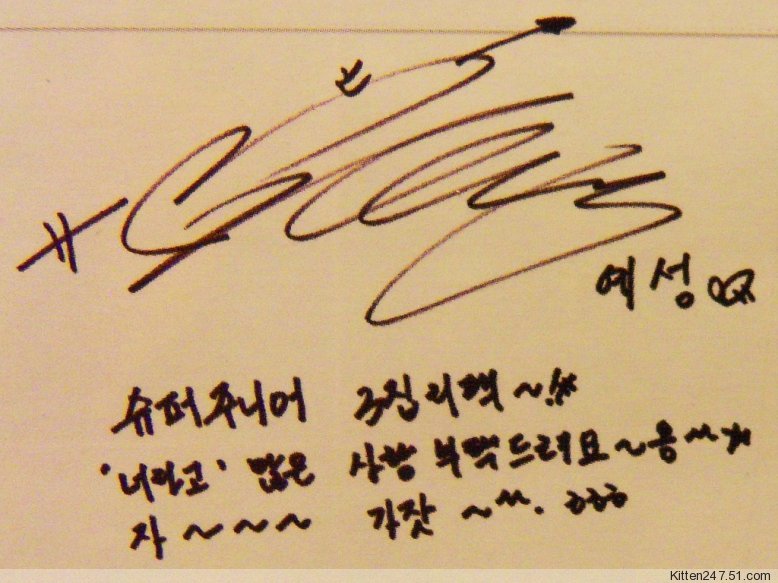 예성
슈퍼주니어 3집리팩~!!*
'너라고' 많은 사랑 부탁드려요~용^^*
자~~~ 가잣~^^. ㅎㅎㅎ
Kitten247.51.com